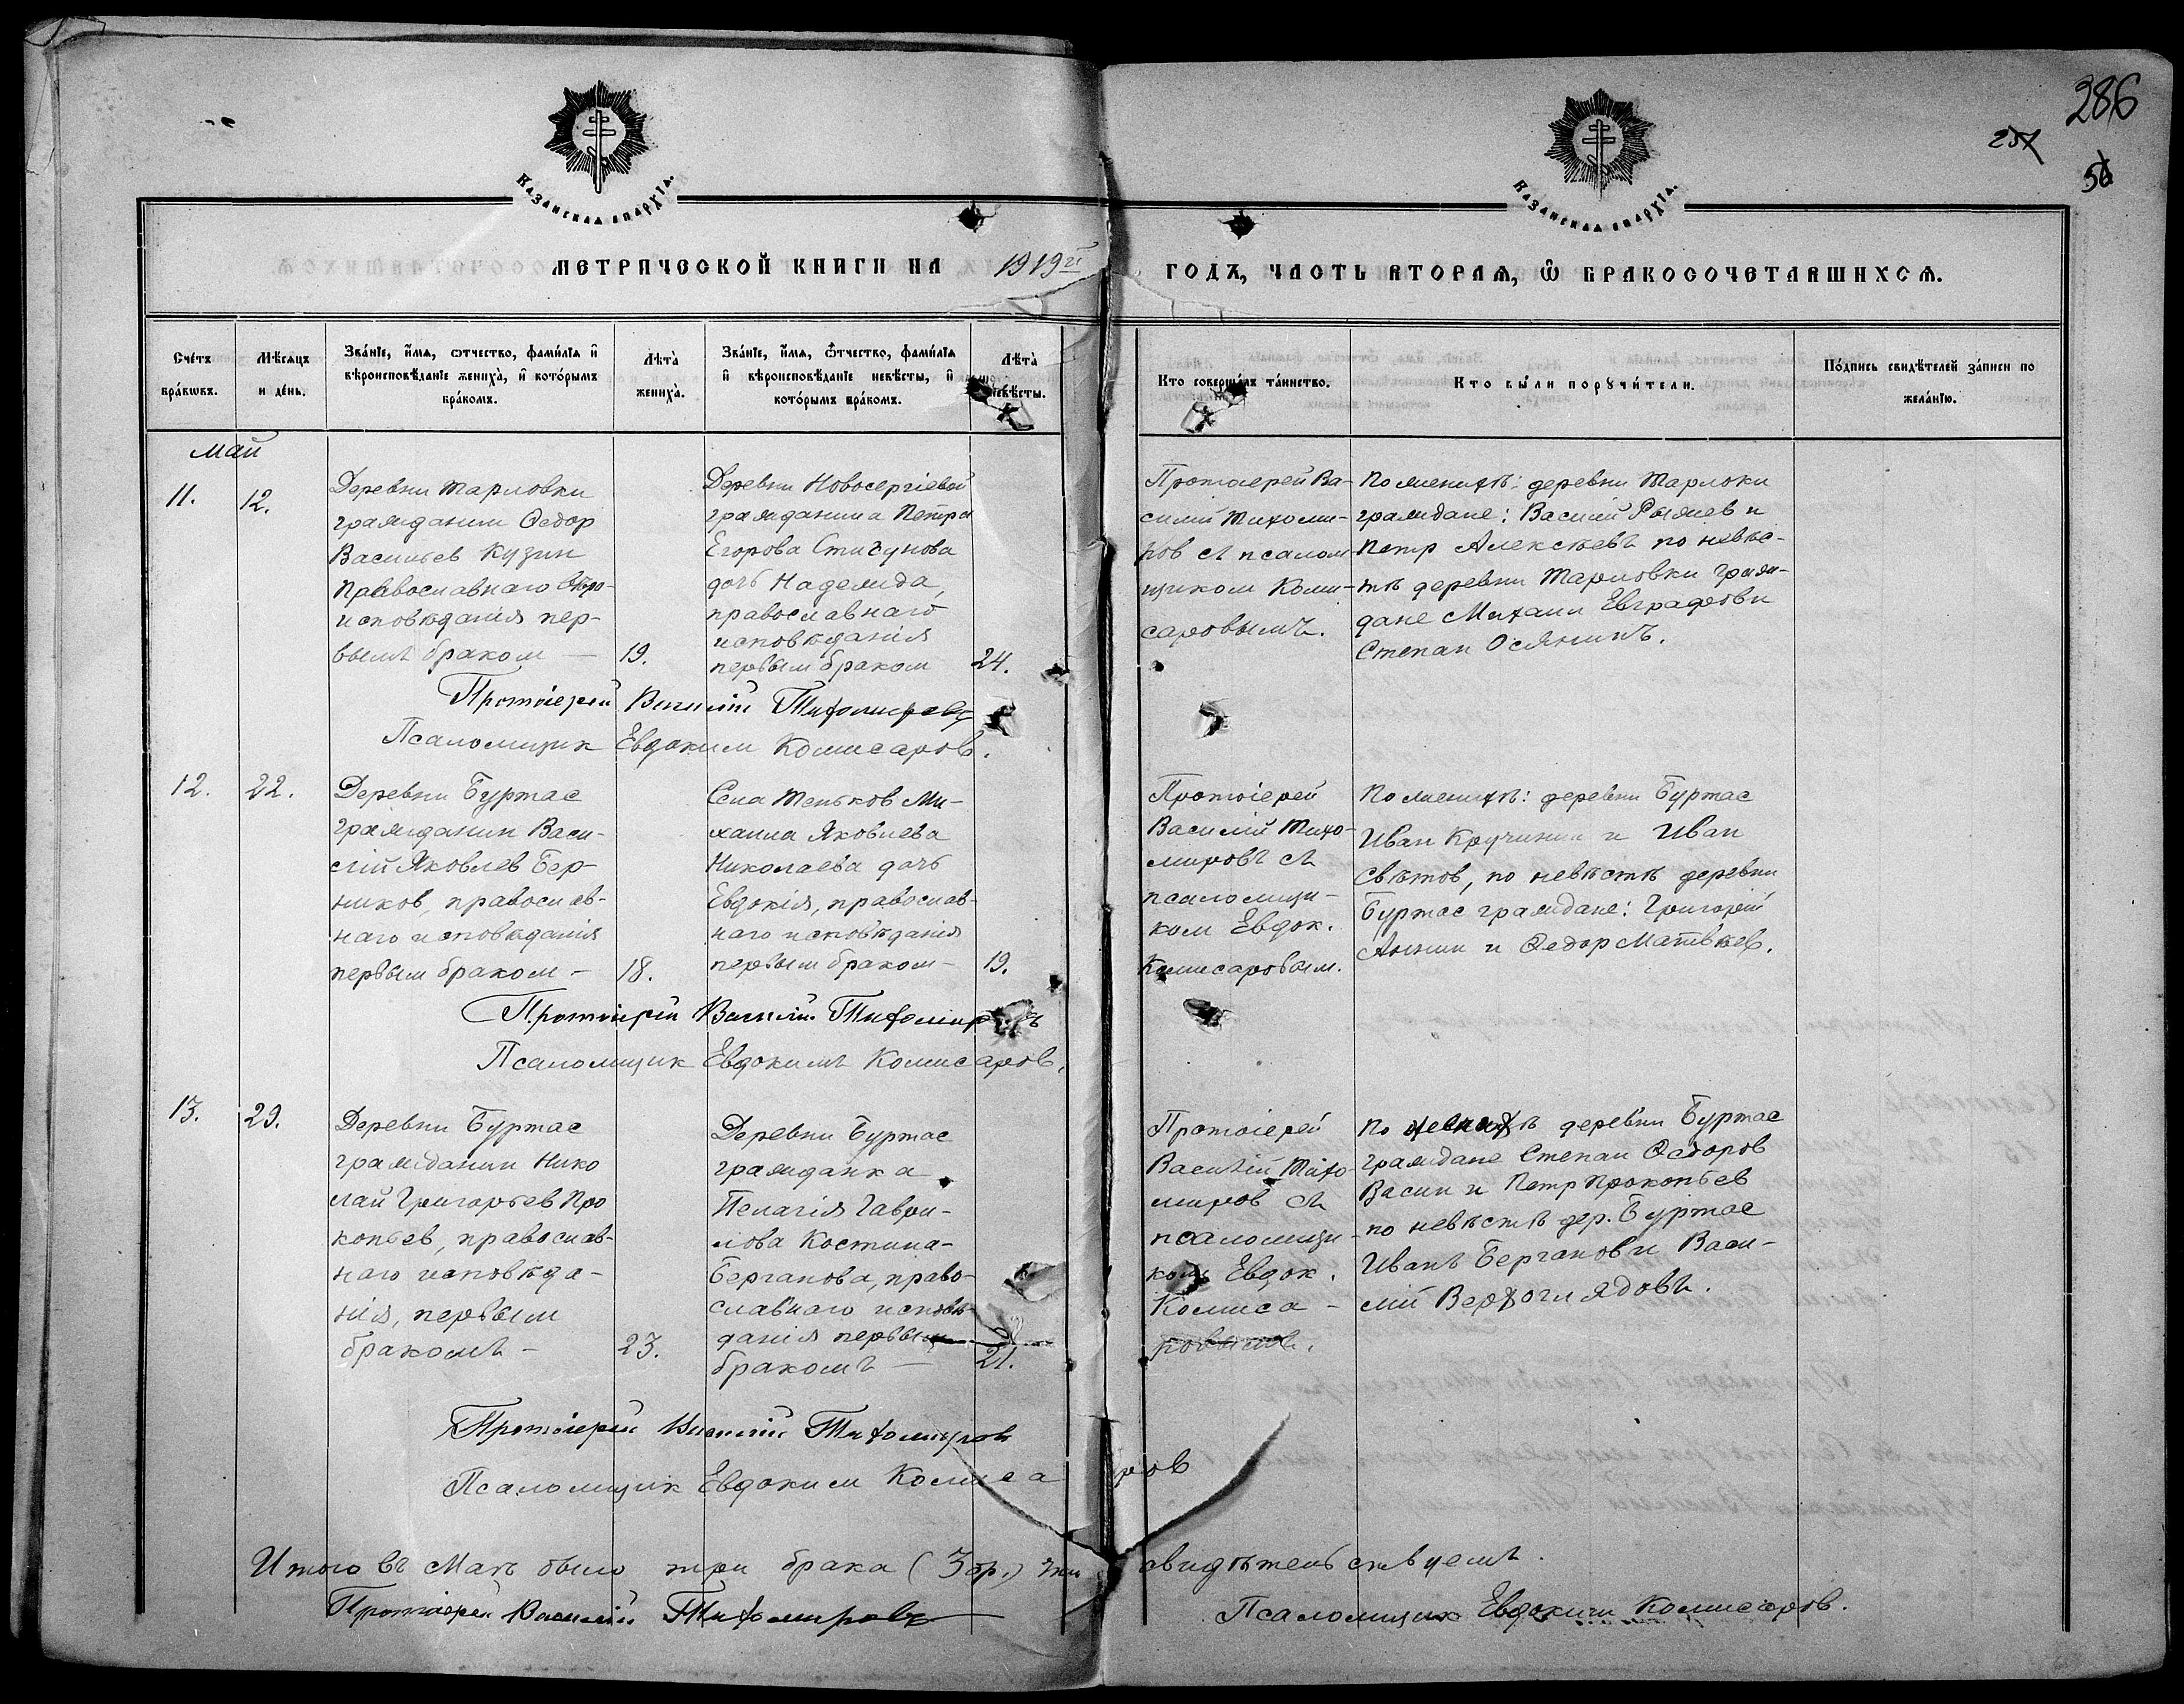 286
257
56
Казанская епархія.
Казанская епархія.
МЕТРИЧЕСКОЙ КНИГИ НА 1919 г. ГОДЪ, ЧАСТЬ ВТОРАЯ, Ѡ БРАКОСОЧЕТАВШИХСЯ.
Сче́тъ бра́кѡвъ.
Мѣ́сяцъ и де́нь.
Зва́нїе, и́мя, ѻтчество, фами́лїя и вѣроисповѣ́данїе жениха̀, и кото́рымъ бра́комъ.
Лѣта̀ жениха̀.
Зва́нїе, и́мя, ѻтчество, фами́лїя и вѣроисповѣ́данїе невѣ́сты, и кото́рымъ бра́комъ.
Лѣта̀ невѣ́сты.
Кто соверша́лъ та́инство.
Кто бы́ли порꙋчи́тели.
По́дпись свидѣ́телей за́писи по жела́нїю.
Май
11.
12.
Деревни Тарловки
гражданин Ѳедор
Васильев Кузин
православнаго вѣро-
исповѣданія пер-
вымъ браком —
19.
Деревни Новосергіевой
гражданина Петра
Егорова Стигунова
дочь Надежда,
православнаго
исповѣданія
первым браком
24.
Протоіерей Ва-
силий Тихоми-
ров съ псалом
щиком Коми-
саровымъ.
По женихѣ: деревни Тарлоки
граждане: Василий Рыжев и
Петр Алексѣевъ по невѣс-
тѣ деревни Тарловки граж-
дане Михаил Евграфов и
Степан Осянинъ.
Протоіерей Василій Тихомировъ
Псаломщик Евдоким Комисаров.
12.
22.
Деревни Буртас
гражданин Васи-
лій Яковлев Бер-
ников, православ-
наго исповѣданія
первым браком —
18.
Села Теньков Ми-
хаила Яковлева
Николаева дочь
Евдокія, православ-
наго исповѣданія
первым браком —
19.
Протоіерей
Василій Тихо-
мировъ съ
псаломщи-
ком Евдок.
Комисаровым.
По женихѣ: деревни Буртас
Иван Кручинин и Иван
Свѣтов, по невѣстѣ деревни
Буртас граждане: Григорій
Анкин и Ѳедор Матвѣев.
Протоіерей Василій Тихомировъ
Псаломщик Евдокимъ Комисаров.
13.
29.
Деревни Буртас
гражданин Нико
лай Григорьев Про
копьев, православ-
наго исповѣда-
нія, первым
бракомъ —
23.
Деревни Буртас
гражданка
Пелагія Гаври-
лова Костина-
Берганова, право-
славнаго исповѣ-
данія первым
бракомъ —
21.
Протоіерей
Василій Тихо-
миров съ
псаломщи-
комъ Евдок.
Комиса-
ровымъ.
По женихѣ деревни Буртас
граждане Степан Ѳедоров
Васин и Петр Прокопьев
по невѣстѣ дер. Буртас
Иванъ Берганов и Васи-
лий Верхоглядовъ.
Протоіерей Василій Тихомировъ
Псаломщик Евдоким Комисаров
Итого въ Маѣ было три брака (3 бр.) свидѣтельствуемъ.
Протоіерей Василій Тихомировъ
Псаломщик Евдоким Комисаров.